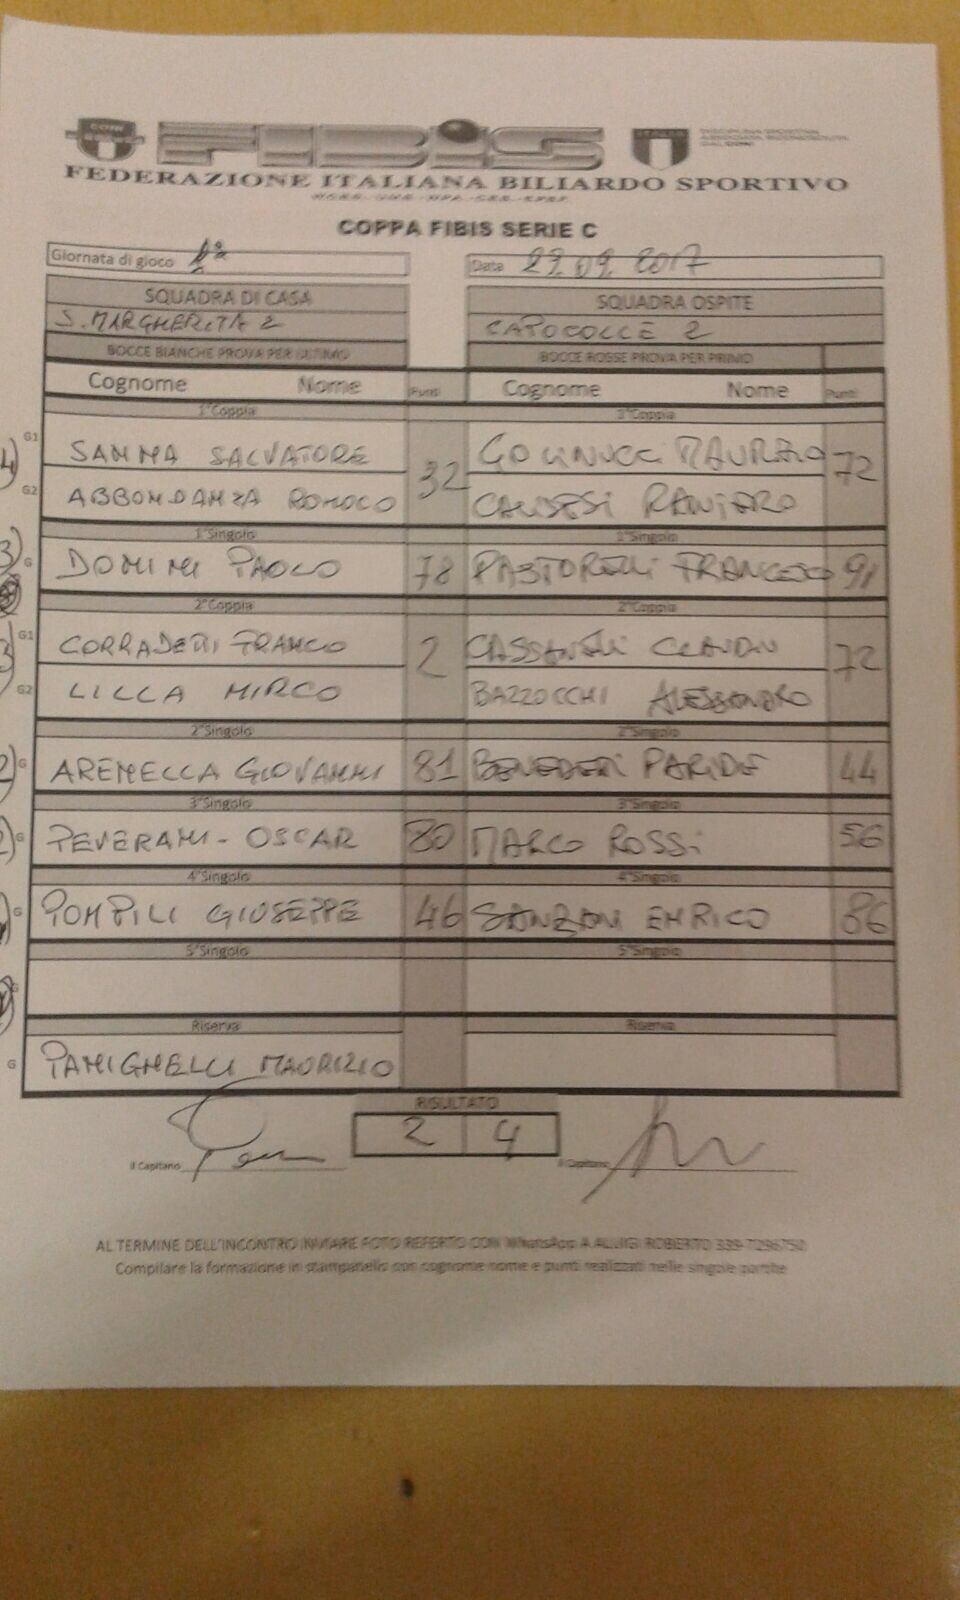 FIBIS
FEDERAZIONE ITALIANA BILIARDO SPORTIVO
COPPA FIBIS SERIE C
Giornata di gioco 1ª Data 29.09.2017
SQUADRA DI CASA SQUADRA OSPITE
S. MARGHERITA 2 CAPOCOLLE 2
BOCCE BIANCHE PROVA PER ULTIMO BOCCE ROSSE PROVA PER PRIMO
Cognome Nome Punti Cognome Nome Punti
1°Coppia 1°Coppia
G1 SAMMA SALVATORE 32 72
G2 ABBONDANZA ROMOLO RANIERO
1°Singolo 1°Singolo
G DOMINI PAOLO 78 PASTORELLI FRANCESCO 91
2°Coppia 2°Coppia
G1 FRANCO 2 CLAUDIO 72
G2 LILLA MIRCO BAZZOCCHI ALESSANDRO
2°Singolo 2°Singolo
G AREMELLA GIOVANNI 81 PARIDE 44
3°Singolo 3°Singolo
G PEVERANI - OSCAR 80 MARCO ROSSi 56
4°Singolo 4°Singolo
G POMPILI GIUSEPPE 46 ENRICO 86
5°Singolo 5°Singolo
G
Riserva Riserva
G PAMIGHELLI MAURIZIO
RISULTATO
2 4
Il Capitano Il Capitano
AL TERMINE DELL'INCONTRO INVIARE FOTO REFERTO CON WhatsApp A ALUIGI ROBERTO 339-7296750
Compilare la formazione in stampatello con cognome nome e punti realizzati nelle singole partite